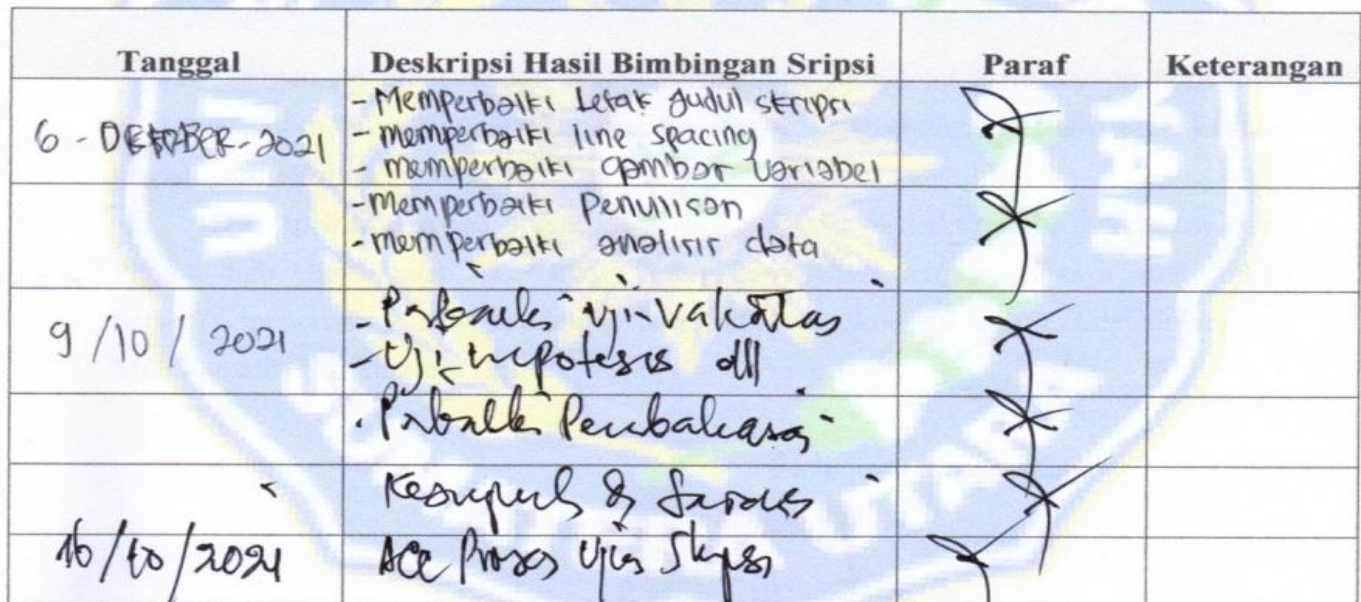 Tanggal Deskripsi Hasil Bimbingan Sripsi Paraf Keterangan
- Memperbaiki Letak Judul skripsi
6 - - 2021 - memperbaiki line spacing
- memperbaiki gambar Variabel
- memperbaiki Penulisan
- memperbaiki analisis data
9/10/2021 - Perbaiki uji Validitas
- Uji hipotesis dll
- Perbaiki Pembahasan
Kesimpulan & Saran
16/10/2021 ACC Proses Ujian Skripsi
UNI
YAH
SUMATERA UTARA